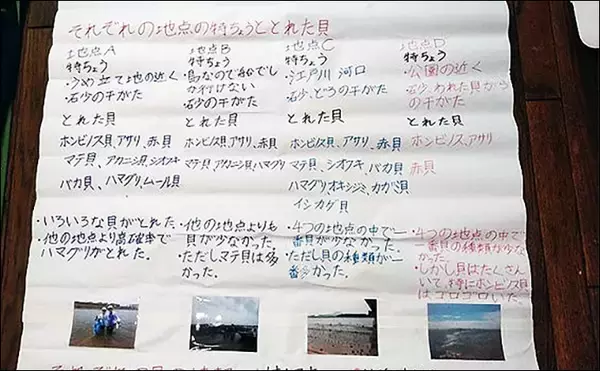 それぞれの地点の特ちょうととれた貝
地点A
特ちょう
・うめ立て地の近く
・砂の干がた
とれた貝
ホンビノス貝、アサリ、赤貝
マテ貝、アカニシ、シオフキ
バカ貝、ハマグリ、ムール貝
・いろいろな貝がとれた。
・他の地点より高確率で
ハマグリがとれた。
地点B
特ちょう
・島なので船でしか行けない
・砂の干がた
とれた貝
ホンビノス貝、アサリ、赤貝
マテ貝、アカニシ貝、ハマグリ
・他の地点よりも
貝が少なかった。
・ただしマテ貝は多
かった。
地点C
特ちょう
・江戸川 河口
・砂、どろの干がた
とれた貝
ホンビノス貝、アサリ、赤貝
マテ貝、シオフキ、バカ貝
ハマグリ、オキシジミ、カガミ貝
イシカゲ貝
・4つの地点の中で一
番貝が少なかった。
・ただし貝の種類が一
番多かった。
地点D
特ちょう
・公園の近く
・砂、われた貝がら
の干がた
とれた貝
ホンビノス、アサリ
赤貝
・4つの地点の中で
一番貝の種類が少な
かった。
・しかし貝はたくさん
いて、特にホンビノス貝
はゴロゴロいた。